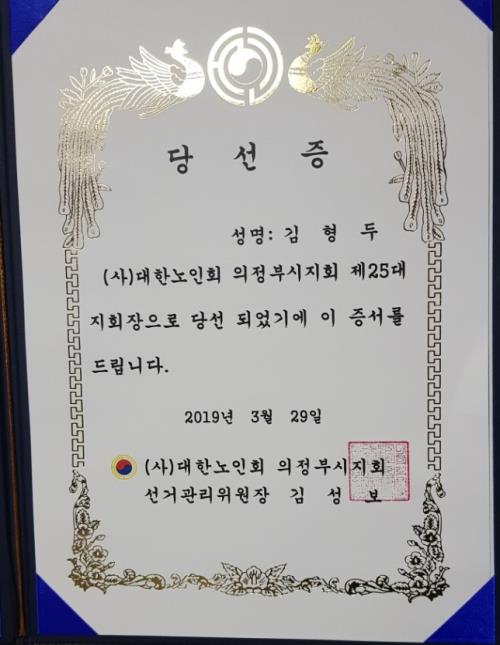 당 선 증
성명: 김 형 두
(사)대한노인회 의정부시지회 제25대
지회장으로 당선 되었기에 이 증서를
드립니다.
2019년 3월 29일
(사)대한노인회 의정부시지회
선거관리위원장 김 성 보